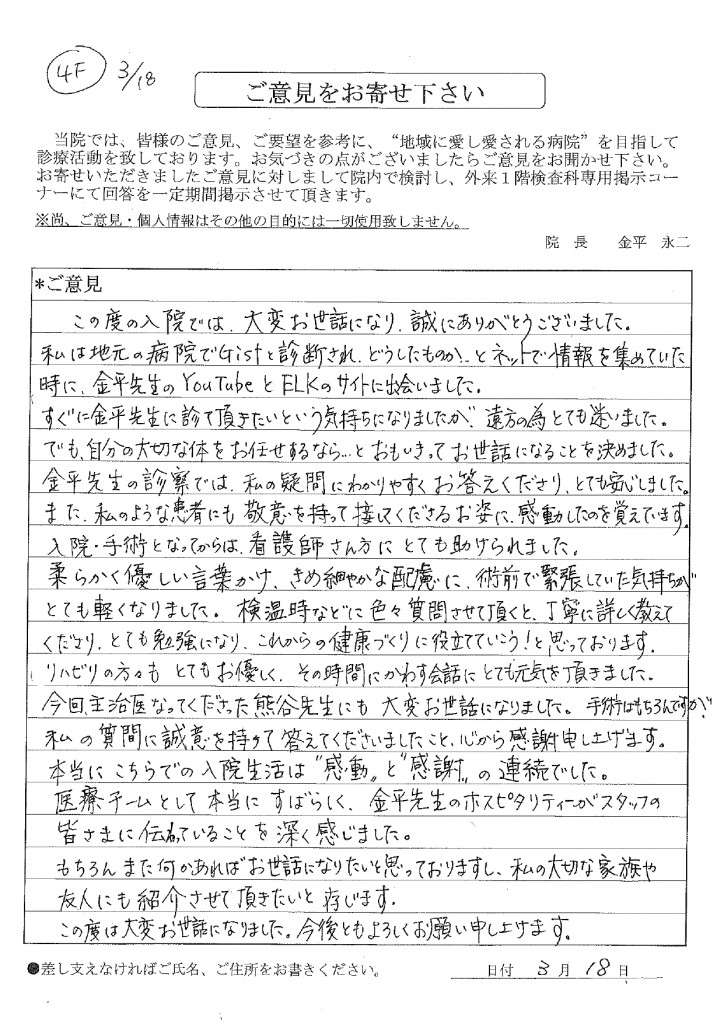 4F 3/18
ご意見をお寄せ下さい
当院では、皆様のご意見、ご要望を参考に、“地域に愛し愛される病院”を目指して
診療活動を致しております。お気づきの点がございましたらご意見をお聞かせ下さい。
お寄せいただきましたご意見に対しまして院内で検討し、外来1階検査科専用掲示コー
ナーにて回答を一定期間掲示させて頂きます。
※尚、ご意見・個人情報はその他の目的には一切使用致しません。
院 長 金平 永二
*ご意見
この度の入院では、大変お世話になり、誠にありがとうございました。
私は地元の病院でGistと診断され、どうしたものか…とネットで情報を集めていた
時に、金平先生のYouTubeとELKのサイトに出会いました。
すぐに金平先生に診て頂きたいという気持ちになりましたが、遠方の為とても迷いました。
でも、自分の大切な体をお任せするなら…とおもいきってお世話になることを決めました。
金平先生の診察では、私の疑問にわかりやすくお答えくださり、とても安心しました。
また、私のような患者にも敬意を持って接してくださるお姿に、感動したのを覚えています。
入院・手術となってからは、看護師さん方にとても助けられました。
柔らかく優しい言葉かけ、きめ細やかな配慮に、術前で緊張していた気持ちが
とても軽くなりました。検温時などに色々質問させて頂くと、丁寧に詳しく教えて
くださり、とても勉強になり、これからの健康づくりに役立てていこう!と思っております。
リハビリの方々も とてもお優しく、その時間にかわす会話にとても元気を頂きました。
今回主治医なってくださった熊谷先生にも 大変お世話になりました。手術はもちろんですが、
私の質問に誠意を持って答えてくださいましたこと、心から感謝申し上げます。
本当にこちらでの入院生活は“感動”と“感謝”の連続でした。
医療チームとして本当にすばらしく、金平先生のホスピタリティーがスタッフの
皆さまに伝わっていることを深く感じました。
もちろんまた何かあればお世話になりたいと思っておりますし、私の大切な家族や
友人にも紹介させて頂きたいと存じます。
この度は大変お世話になりました。今後ともよろしくお願い申し上げます。
●差し支えなければご氏名、ご住所をお書きください。 日付 3月18日